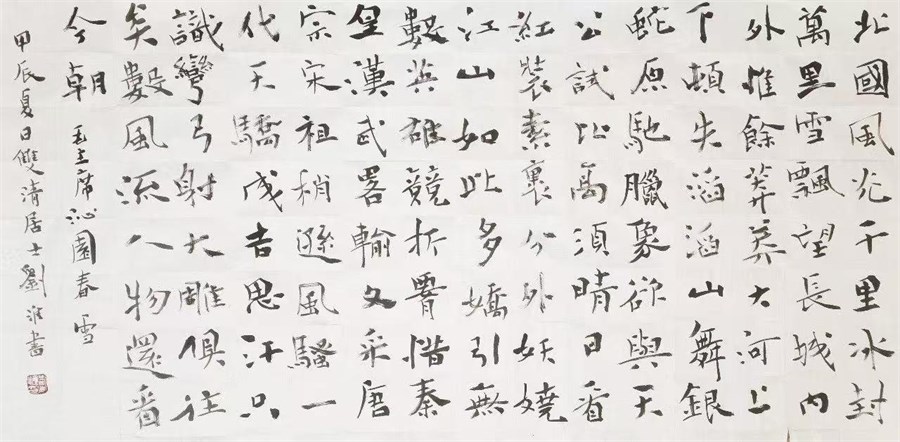 北國風光千里冰封
萬里雪飄望長城內
外惟餘莽莽大河上
下頓失滔滔山舞銀
蛇原馳臘象欲與天
公試比高須晴日看
紅裝素裹分外妖嬈
江山如此多嬌引無
數英雄競折腰惜秦
皇漢武畧輸文采唐
宗宋祖稍遜風騷一
代天驕成吉思汗只
識彎弓射大雕俱往
矣數風流人物還看
今朝 毛主席沁園春雪
甲辰夏日雙清居士劉淮書